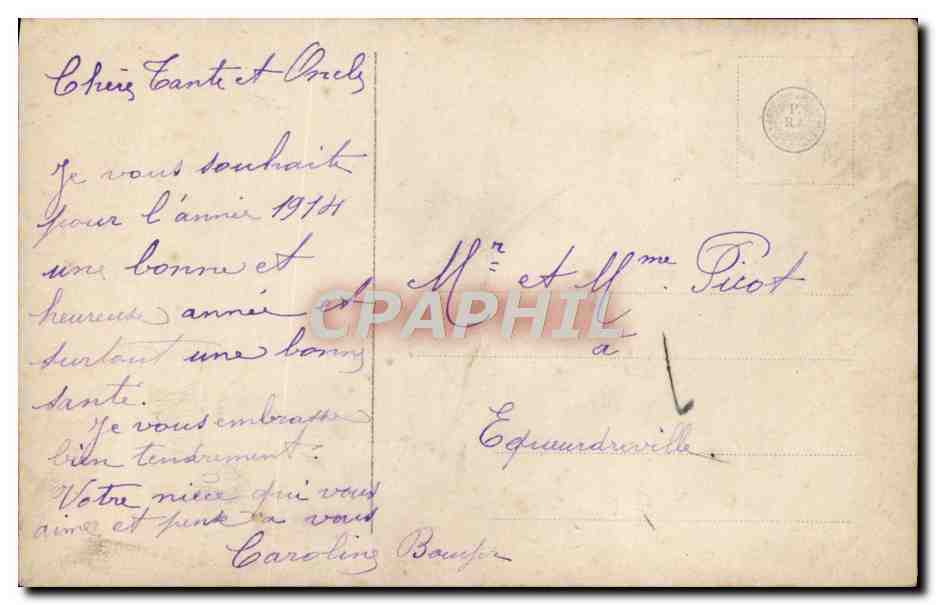 Chère Tante et Oncle
Je vous souhaite
pour l'année 1914
une bonne et
heureuse année et
surtout une bonne
santé.
Je vous embrasse
bien tendrement.
Votre nièce qui vous
aime et pense a vous
Caroline
P.
R.
Mr et Mme Picot
a
Equeurdreville
CPAPHIL